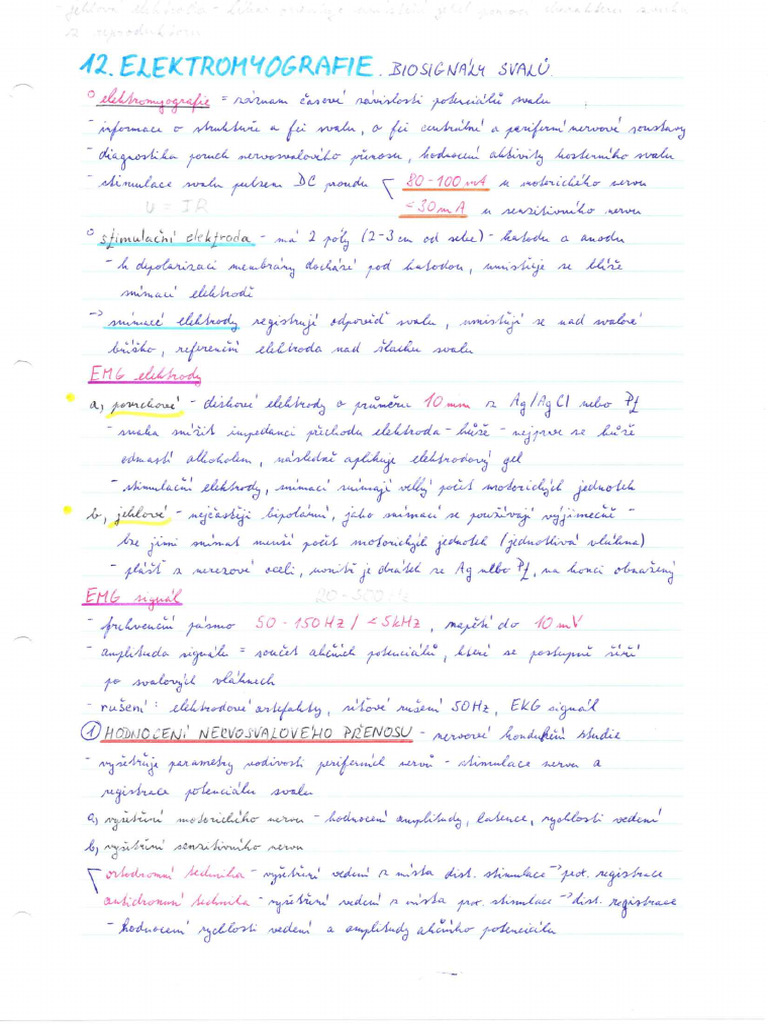 - jehlová elektroda -
z reproduktoru
12. ELEKTROMYOGRAFIE. BIOSIGNÁLY SVALŮ.
° elektromyografie = záznam časové závislosti potenciálů svalu
- informace o struktuře a fci svalu, o fci centrální a periferní nervové soustavy
- diagnostika poruch nervosvalového přenosu, hodnocení aktivity kosterního svalu
- stimulace svalu pulzem DC proudu < 80-100 mA u motorického nervu
U = IR <30 mA u senzitivního nervu
° stimulační elektroda - má 2 póly (2-3 cm od sebe) - katodu a anodu
- k depolarizaci membrány dochází pod katodou, umisťuje se blíže
snímací elektrodě
-> snímací elektrody registrují odpověď svalu, umisťují se nad svalové
bříško, referenční elektroda nad šlachu svalu
EMG elektrody
a, povrchové - diskové elektrody o průměru 10 mm z Ag/AgCl nebo Pt
- snaha snížit impedanci přechodu elektroda - kůže - nejprve se kůže
odmastí alkoholem, následně aplikuje elektrodový gel
- stimulační elektrody, snímací snímají velký počet motorických jednotek
b, jehlové - nejčastěji bipolární, jako snímací se používají výjimečně -
lze jimi snímat menší počet motorických jednotek (jednotlivá vlákna)
- plášť z nerezové oceli, uvnitř je drátek ze Ag nebo Pt, na konci obnažený
EMG signál 20-500 Hz
- frekvenční pásmo 50-150 Hz / <5kHz, napětí do 10 mV
- amplituda signálu = součet akčních potenciálů, které se postupně šíří
po svalových vláknech
- rušení: elektrodové artefakty, síťové rušení 50Hz, EKG signál
① HODNOCENÍ NERVOSVALOVÉHO PŘENOSU - nervové kondukční studie
- vyšetřuje parametry vodivosti periferních nervů - stimulace nervu a
registrace potenciálu svalu
a, vyšetření motorického nervu - hodnocení amplitudy, latence, rychlosti vedení
b, vyšetření senzitivního nervu
ortodromní technika - vyšetření vedení z místa dist. stimulace -> prox. registrace
antidromní technika - vyšetření vedení z místa prox. stimulace -> dist. registrace
- hodnocení rychlosti vedení a amplitudy akčního potenciálu